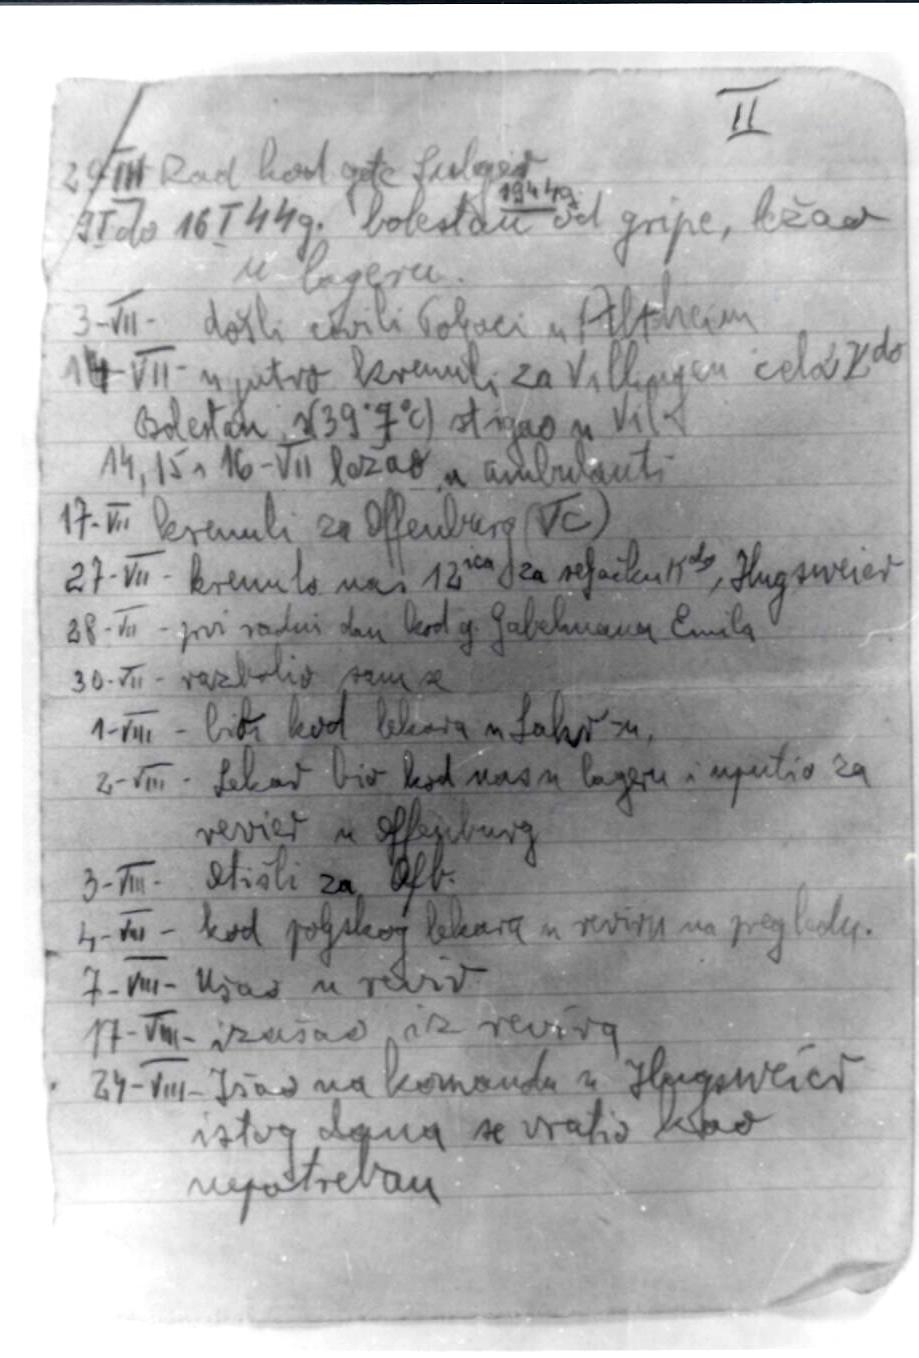 II
29-III Rad kod gde
1944g.
9I do 16 I 44g. bolestan od gripe, ležao
u lageru.
3-VII- došli civili Poljaci u Altheim
14-VII- u jutro krenuli za Villingen celo Kdo
Bolestan (39°7°C) stigao u Vil
14, 15 i 16-VII ležao u ambulanti
17-VII krenuli za Offenburg (VC)
27-VII- krenulo nas 12ica za seljačku Kdo, Hugsweier
28-VII- prvi radni dan kod g. Gabelmana Emila
30-VII- razbolio sam se
1-VIII- bio kod lekara u Lahr-u,
2-VIII- Lekar bio kod nas u lageru i uputio za
revier u Offenburg
3-VIII- Otišli za Ofb.
4-VIII- kod poljskog lekara u reviru na pregledu.
7-VIII- Ušao u revir
17-VIII- izašao iz revira
24-VIII- Išao na komandu u Hugsweier
istog dana se vratio kao
nepotreban